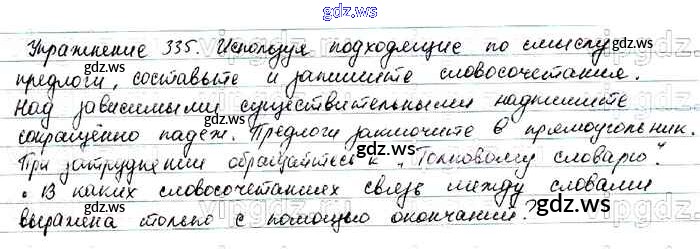 gdz.ws
Упражнение 335. Используя подходящие по смыслу
предлоги, составьте и запишите словосочетания.
Над зависимыми существительными надпишите
сокращённо падеж. Предлоги заключите в прямоугольник.
При затруднении обращайтесь к „Толковому словарю".
• В каких словосочетаниях связь между словами
выражена только с помощью окончаний?
gdz.ws